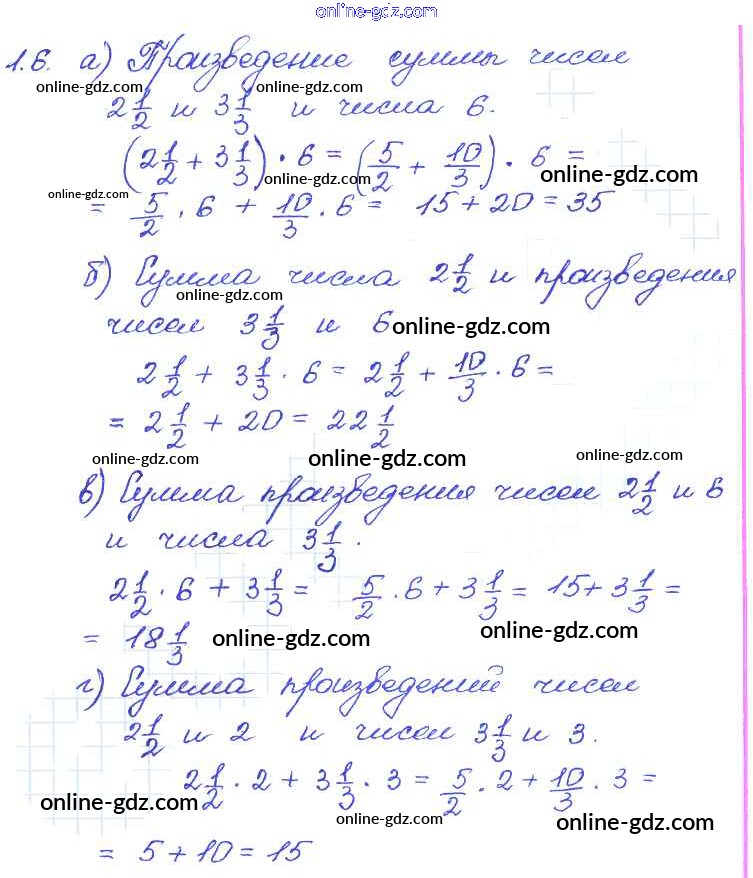 online-gdz.com
1.6. а) Произведение суммы чисел
online-gdz.com online-gdz.com
2 1/2 и 3 1/3 и числа 6.
(2 1/2 + 3 1/3) · 6 = (5/2 + 10/3) · 6 =
online-gdz.com online-gdz.com online-gdz.com
= 5/2 · 6 + 10/3 · 6 = 15 + 20 = 35
б) Сумма числа 2 1/2 и произведения
online-gdz.com
чисел 3 1/3 и 6
online-gdz.com
2 1/2 + 3 1/3 · 6 = 2 1/2 + 10/3 · 6 =
= 2 1/2 + 20 = 22 1/2
online-gdz.com online-gdz.com online-gdz.com
в) Сумма произведения чисел 2 1/2 и 6
и числа 3 1/3.
2 1/2 · 6 + 3 1/3 = 5/2 · 6 + 3 1/3 = 15 + 3 1/3 =
= 18 1/3
online-gdz.com online-gdz.com
г) Сумма произведений чисел
2 1/2 и 2 и чисел 3 1/3 и 3.
2 1/2 · 2 + 3 1/3 · 3 = 5/2 · 2 + 10/3 · 3 =
online-gdz.com online-gdz.com online-gdz.com
= 5 + 10 = 15